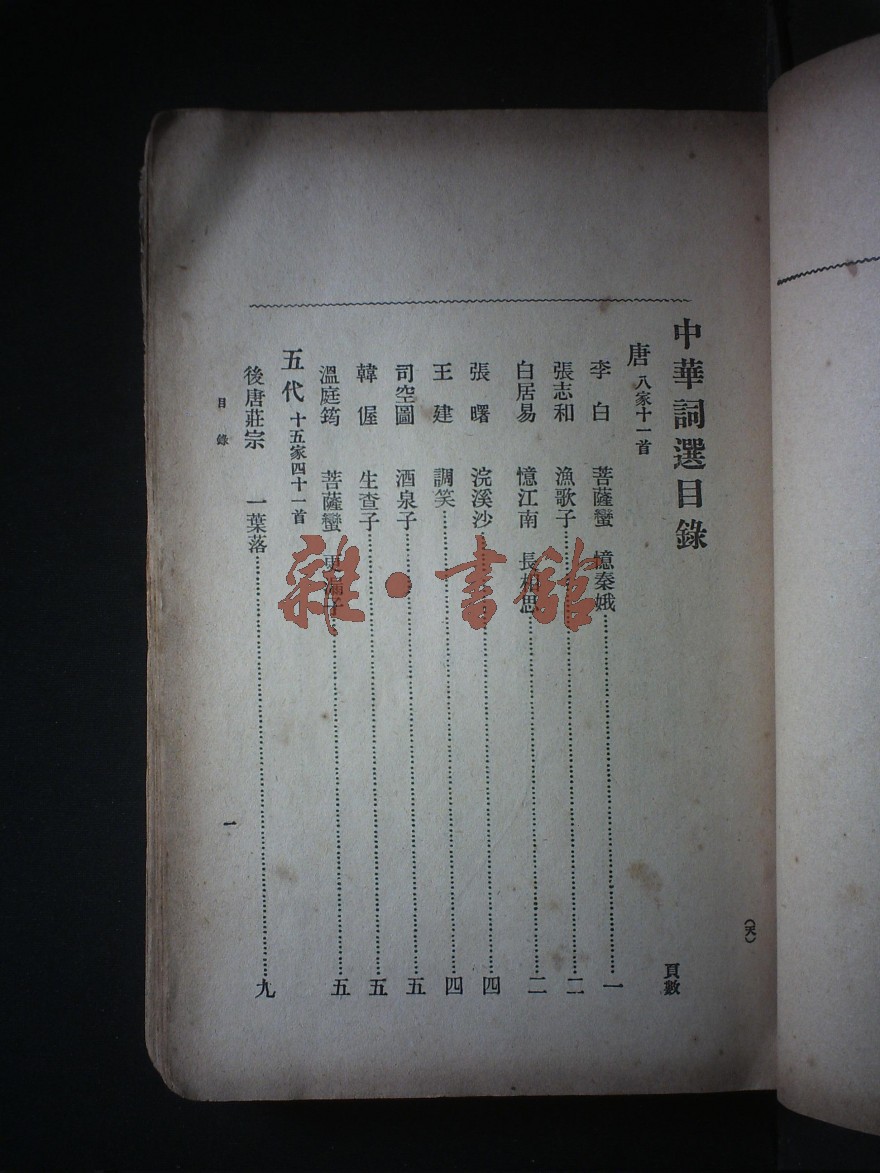 中華詞選目錄
頁數
唐 八家十一首
李白 菩薩蠻 憶秦娥 一
張志和 漁歌子 二
白居易 憶江南 長相思 二
張曙 浣溪沙 四
王建 調笑 四
司空圖 酒泉子 五
韓偓 生查子 五
溫庭筠 菩薩蠻 更漏子 五
五代 十五家四十一首
後唐莊宗 一葉落 九
目錄
一
雜·書館